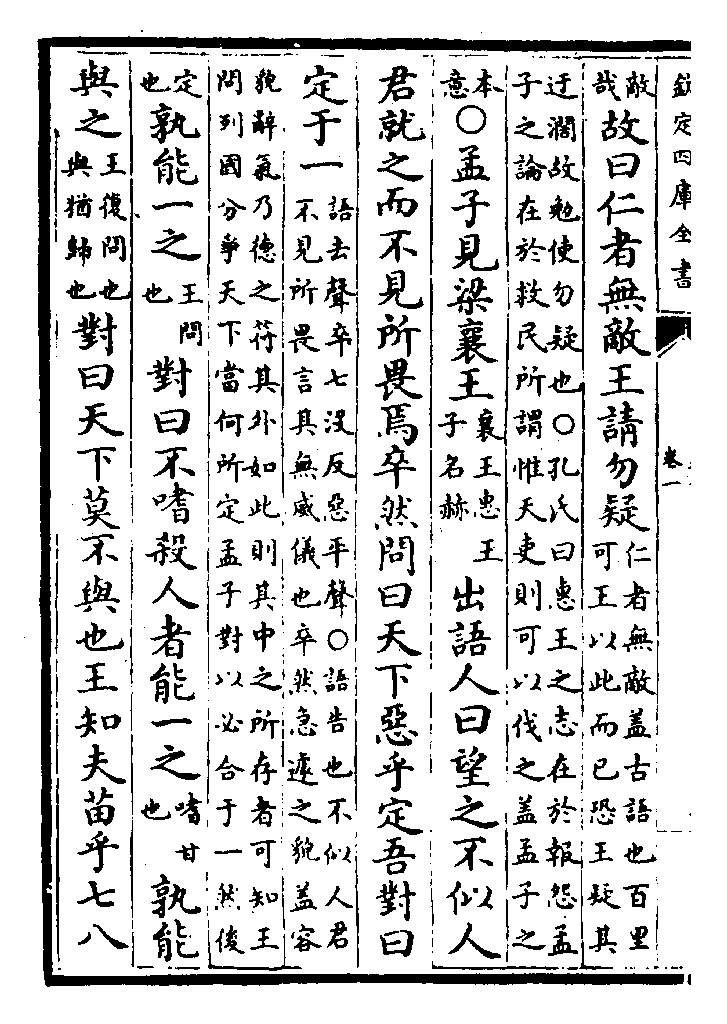 欽定四庫全書 卷一
敵哉故曰仁者無敵王請勿疑仁者無敵盖古語也百里可王以此而已恐王疑其
迂濶故勉使勿疑也○孔氏曰惠王之志在於報怨孟
子之論在於救民所謂惟天吏則可以伐之盖孟子之
本意○孟子見梁襄王襄王惠王子名赫出語人曰望之不似人
君就之而不見所畏焉卒然問曰天下惡乎定吾對曰
定于一語去聲卒七没反惡平聲○語告也不似人君不見所畏言其無威儀也卒然急遽之貌盖容
貌辭氣乃德之符其外如此則其中之所存者可知王
問列國分爭天下當何所定孟子對以必合于一然後
定也孰能一之王問也對曰不嗜殺人者能一之嗜甘也孰能
與之王復問也與猶歸也對曰天下莫不與也王知夫苗乎七八